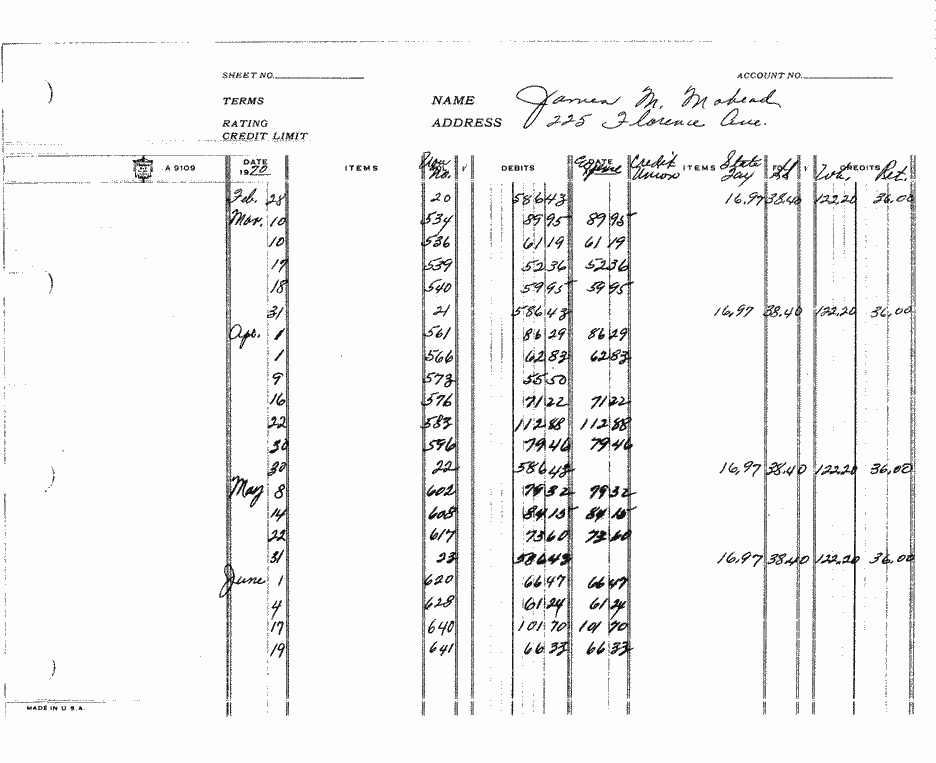 SHEET NO. ACCOUNT NO.
TERMS NAME James M. Mohead
RATING ADDRESS 225 Florence Ave.
CREDIT LIMIT
A 9109 DATE 1970 ITEMS No. √ DEBITS DATE Credit Union ITEMS State √ CREDITS Ret.
Feb. 28 20 586 43 16.97 38.40 122.20 36.00
Mar. 10 534 89 95 89 95
10 536 61 19 61 19
17 539 52 36 52 36
18 540 59 95 59 95
31 21 586 43 16.97 38.40 122.20 36.00
Apr. 1 561 86 29 86 29
1 566 62 83 62 83
9 573 55 50
16 576 71 22 71 22
22 583 112 88 112 88
30 596 79 46 79 46
30 22 586 43 16.97 38.40 122.20 36.00
May 8 602 79 32 79 32
14 608 84 15 84 15
22 617 73 60 73 60
31 23 586 43 16.97 38.40 122.20 36.00
June 1 620 66 47 66 47
4 628 61 24 61 24
17 640 101 70 101 70
19 641 66 33 66 33
MADE IN U.S.A.